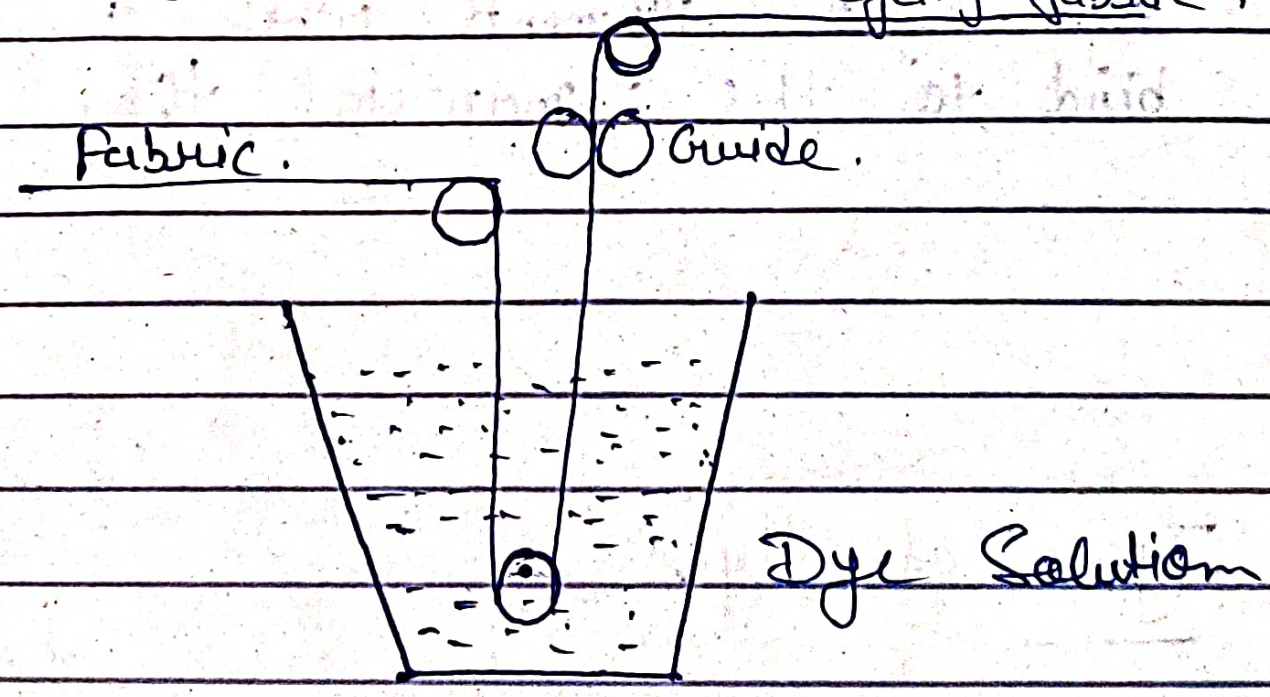 Fabric.
Guide.
Dye Solution